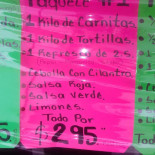 Paquete #1
1 Kilo de Carnitas
1 Kilo de Tortillas.
1 Refresco de 2.5
Cebolla Con Cilantro
Salsa Roja.
Salsa Verde.
Limones.
Todo Por
$295